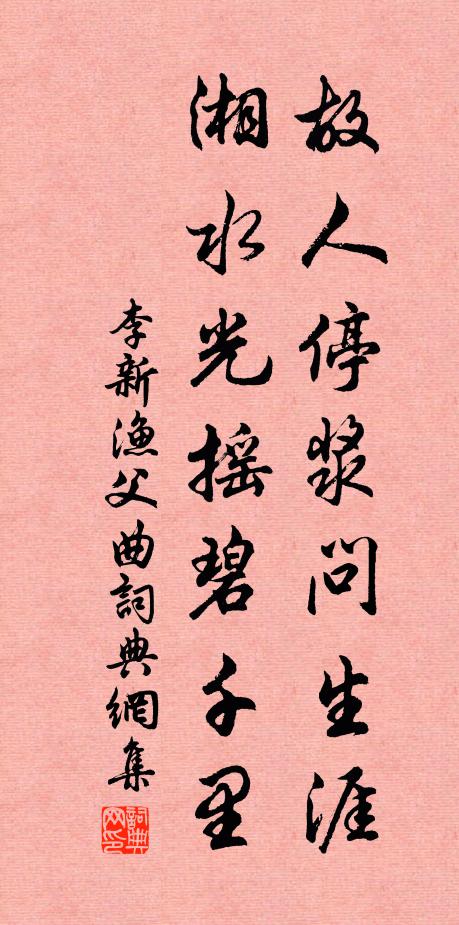 故人停浆问生涯
湘水光摇碧千里
李新漁父曲詞典網集
詞典网印